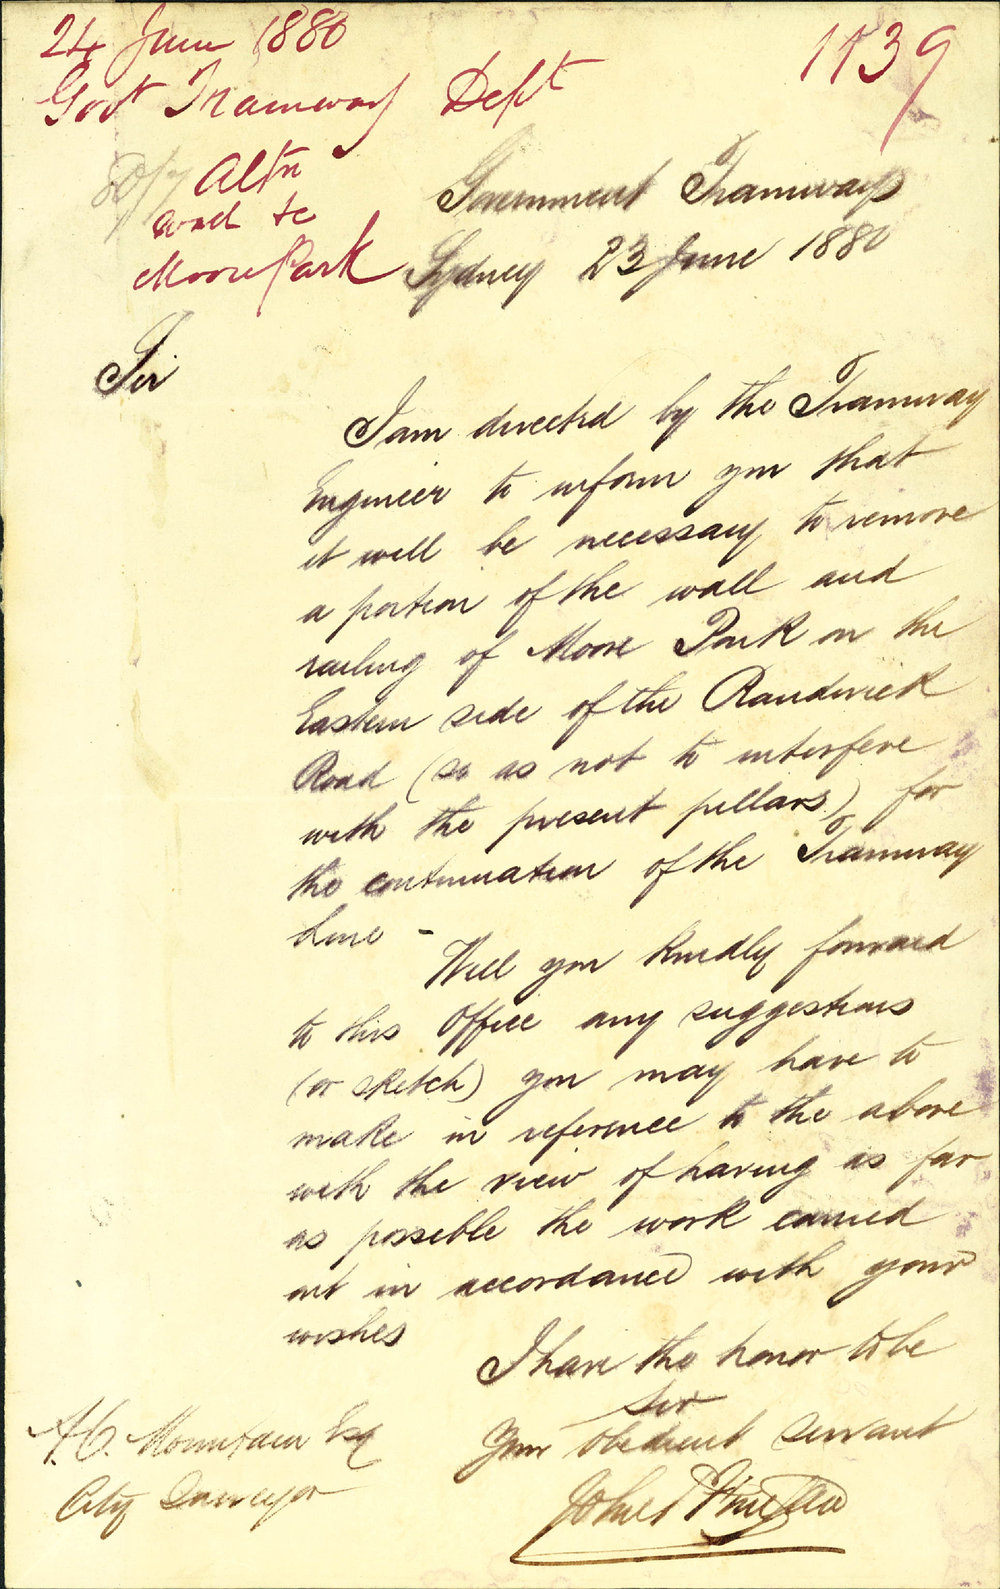 24 June 1880
1139
Govt Tramway Dept
Altn
wall &c
Moore Park
Government Tramways
Sydney 23 June 1880
Sir
I am directed by the Tramway
Engineer to inform you that
it will be necessary to remove
a portion of the wall and
railing of Moore Park on the
Eastern side of the Randwick
Road (so as not to interfere
with the present pillars) for
the continuation of the Tramway
Line -
Will you kindly forward
to this Office any suggestions
(or sketch) you may have to
make in reference to the above
with the view of having as far
as possible the work carried
out in accordance with your
wishes
I have the honor to be
Sir
Your obedient servant
A.C. Mountain Esq
City Surveyor